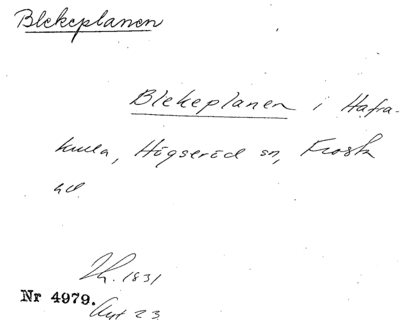 Blekeplanen
Blekeplanen i Hafra-
kulla, Högseröd sn, Frosta
hd.
Lh. 1831
Nr 4979.
Akt 23